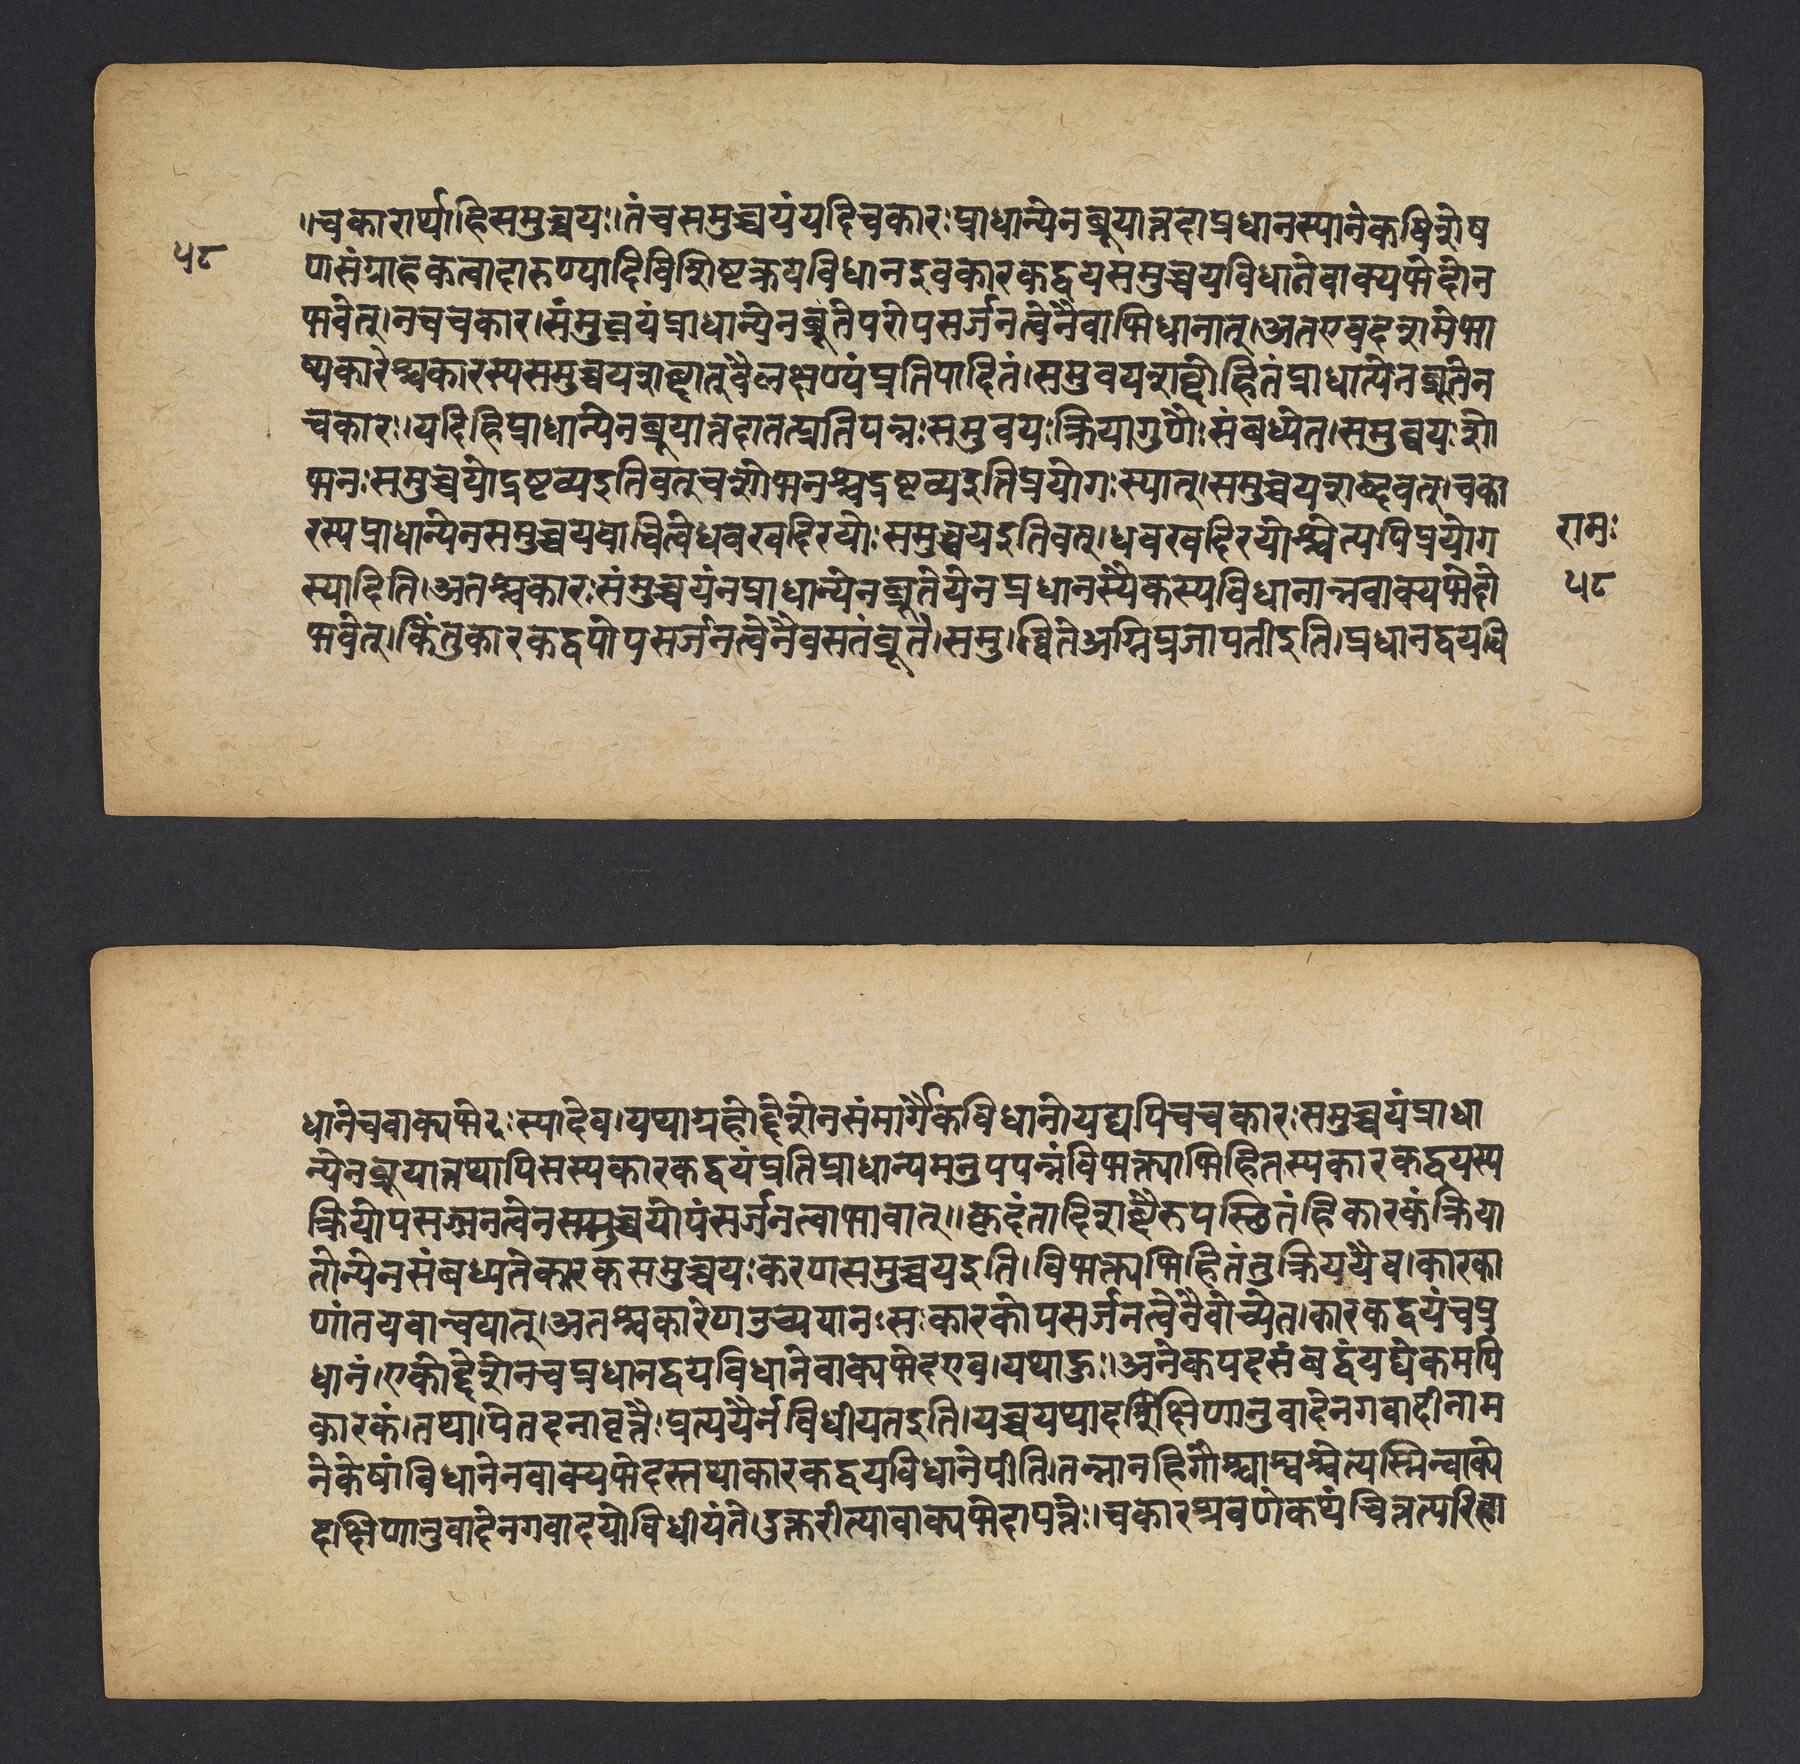 ॥चकारार्थाहिसमुच्चयः।तंचसमुच्चयंयदिचकारःप्राधान्येनब्रूयात्तदाप्रधानस्यानेकविशेष
५८
णासंग्राहकत्वादारुण्यादिविशिष्टक्रयविधानइवकारकद्वयसमुच्चयविधानेवाक्यभेदोन
भवेत्।नचचकार।संमुच्चयंप्राधान्येनब्रूतेपरोपसर्जनत्वेनैवाभिधानात्।अतएवदशमेभा
ष्यकारेश्चकारस्यसमुच्चयशब्दात्वैलक्षण्यंप्रतिपादितं।समुवयशब्दोहितंप्राधात्येनब्रूतेन
चकारः।यदिहिप्राधान्येनब्रूयात्तदातत्प्रतिपन्नःसमुवयःक्रियागुणैःसंबध्येत।समुच्चयःशो
भनःसमुच्चयोद्रष्टव्यइतिवत्चशोभनश्चद्रष्टव्यइतिप्रयोगःस्यात्।समुच्चयशब्दवत्।चका
रस्यप्राधान्येनसमुच्चयवाचित्वेधवखदिरयोःसमुच्चयइतिवत्।धवखदिरयोश्चेत्यपिप्रयोग
रामः
स्यादिति।अतश्चकारःसंमुच्चयंनप्राधान्येनब्रूतेयेनप्रधानस्यैकस्यविधानान्नवाक्यभेदो
५८
भवेत्।किंतुकारकद्वयोपसर्जनत्वेनैवसतंब्रूते।समु।च्चितेअग्निप्रजापतीइति।प्रधानद्वयवि
धानेचवाक्यभेदःस्यादेव।यथाग्रहोद्देशेनसंमार्गैकविधाने।यद्यपिचचकारःसमुच्चयंप्राधा
न्येनब्रूयात्तथापिसस्यकारकद्वयंप्रतिप्राधान्यमनुपपन्नंविभक्त्याभिहितस्यकारकद्वयस्य
क्रियोपसर्जनत्वेनसमुच्चयोपंसर्जनत्वाभावात्॥कृदंतादिशब्दैरुपस्छितंहिकारकंक्रिया
तोन्येनसंबध्यतेकारकसमुच्चयःकरणसमुच्चयइति।विभक्त्यभिहितंतुक्रिययैव।कारका
णांतयवान्वयात्।अतश्चकारेणउच्ययानःसःकारकोपसर्जनत्वेनैवोच्येत।कारकद्वयंचप्र
धानं।एकोद्देशेनचप्रधानद्वयविधानेवाक्यभेदएव।यथाहुः।अनेकपदसंबद्धंयद्येकमपि
कारकं।तथा।पितदनावृत्तैः।प्रत्ययैर्नविधीयतइति।यच्चयथादक्षिणानुवादेनगवादीनाम
नेकेषांविधानेनवाक्यभेदस्तथाकारकद्वयविधानेपीति।तन्नानहिगौश्चाश्वश्चेत्यस्मिन्वाक्ये
दक्षिणानुवादेनगवादयोविधीयंते।उक्तरीत्यावाक्यभेदापत्तेः।चकारश्रवणंकथंचित्तत्परिहा